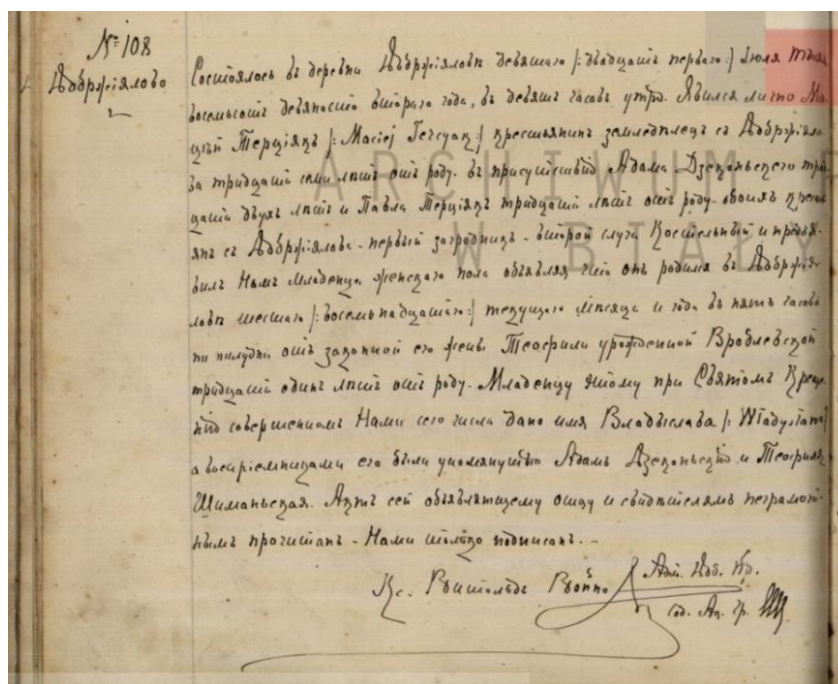 № 108
Добржіялово
Состоялось въ деревни Добржіяловѣ девятаго /:двадцать перваго:/ Іюля тысяча
восемьсотъ девяносто втораго года, въ девять часовъ утра. Явился лично Ма-
цѣй Терціякъ /: Maciej Tercyak:/ крестьянинъ земледѣлецъ съ Добржіяло-
ва тридцати семи лѣтъ отъ роду. въ присутствіи Адама Дзеконьскего трид-
цати двухъ лѣтъ и Павла Терціякъ тридцати лѣтъ отъ роду. обоихъ крестьянъ
съ Добржіялова - первый загродникъ - второй слуга Костельный и предъя-
вилъ Намъ Младенца женскаго пола объявляя что онъ родился въ Добржія-
ловѣ шестаго /:восемьнадцатаго:/ текущаго мѣсяца и года въ пять часовъ
по полудни отъ законной его жены Теофили урожденной Вроблевской
тридцати одинъ лѣтъ отъ роду. Младенцу этому при Святомъ Креще-
ніи совершенномъ Нами сего числа дано имя Владыслава /: Władysława
а воспріемниками его были упомянутый Адамъ Дзеконьскій и Теофиля
Шиманьская. Актъ сей объявляющему отцу и свидѣтелямъ неграмот-
нымъ прочитанъ - Нами только подписанъ. -
Кс. Витольдъ Войно Адм. Доб. Пр.
сод. Ак. гр.
ARCHIWUM P
W BIAŁY